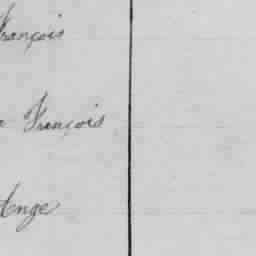 François
François
Ange